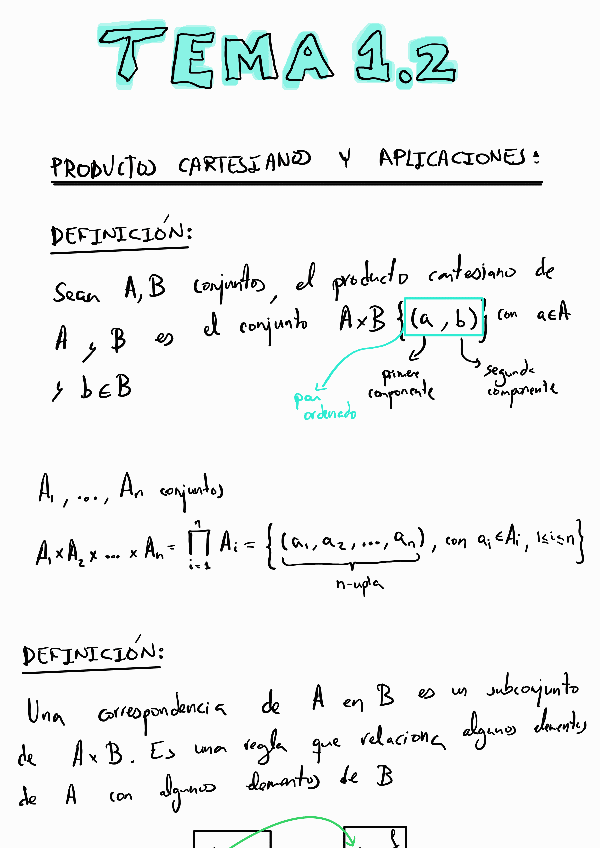 TEMA 1.2
PRODUCTO CARTESIANO Y APLICACIONES:
DEFINICIÓN:
Sean A, B conjuntos, el producto cartesiano de
A y B es el conjunto A×B {(a, b)} con a∈A
y b∈B
primera componente
segunda componente
par ordenado
A₁, ..., Aₙ conjuntos
A₁×A₂×...×Aₙ = ∏ⁿᵢ₌₁ Aᵢ = {(a₁, a₂, ..., aₙ), con aᵢ∈Aᵢ, 1≤i≤n}
n-upla
DEFINICIÓN:
Una correspondencia de A en B es un subconjunto
de A×B. Es una regla que relaciona algunos elementos
de A con algunos elementos de B